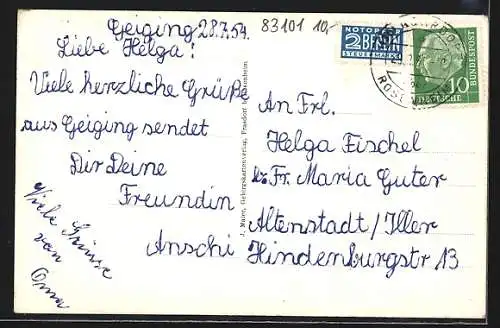 Geiging 28.7.54.
83101 10,-
Liebe Helga!
Viele herzliche Grüße
aus Geiging sendet
Dir Deine
Freundin
Anschi
Viele Grüsse
von
Oma
NOTOPFER
2 BERLIN
STEUERMARKE
DEUTSCHE BUNDESPOST
10
J. Maier, Gebirgskartenverlag, Fraesdorf b. Rosenheim.
An Frl.
Helga Fischel
b/Fr. Maria Guter
Altenstadt/Iller
Hindenburgstr 13